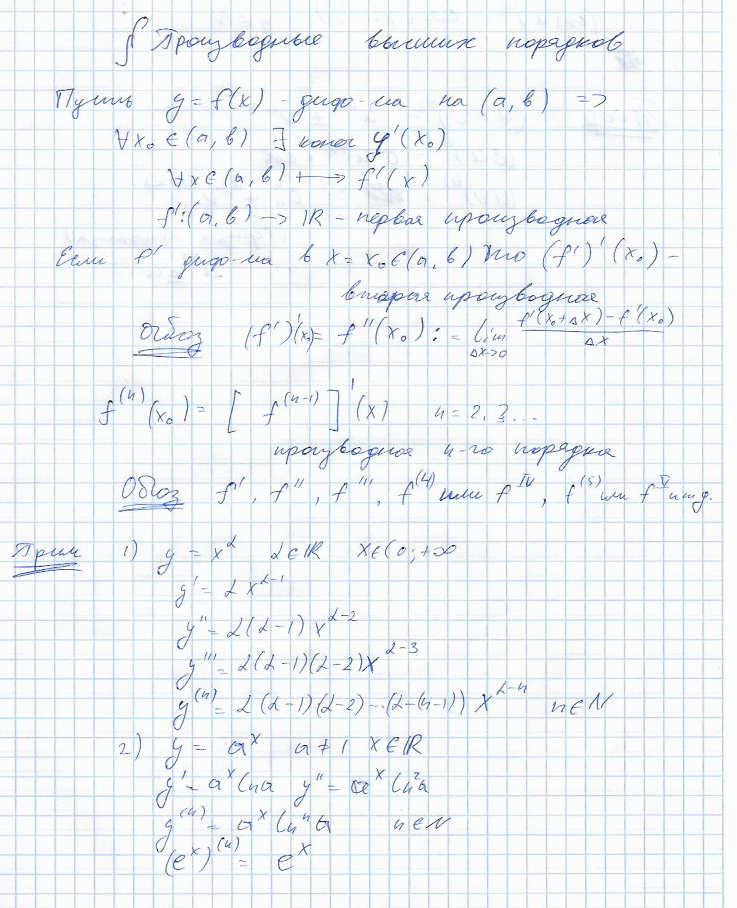 § Производные высших порядков
Пусть y = f(x) - дифф-ма на (a, b) =>
∀x₀ ∈ (a, b) ∃ конеч y'(x₀)
∀x ∈ (a, b) ⟼ f'(x)
f': (a, b) -> ℝ - первая производная
Если f' дифф-ма в x = x₀ ∈ (a, b) то (f')'(x₀) -
вторая производная
Обоз (f')'(x₀) = f''(x₀) := lim_{Δx→0} (f'(x₀+Δx) - f'(x₀))/Δx
f⁽ⁿ⁾(x₀) = [f⁽ⁿ⁻¹⁾]'(x) n = 2, 3...
производная n-го порядка
Обоз f', f'', f''', f⁽⁴⁾ или f^IV, f⁽⁵⁾ или f^V и т д.
Прим 1) y = x^α α ∈ ℝ x ∈ (0; +∞
y' = α x^{α-1}
y'' = α(α-1) x^{α-2}
y''' = α(α-1)(α-2) x^{α-3}
y⁽ⁿ⁾ = α(α-1)(α-2)...(α-(n-1)) x^{α-n} n ∈ N
2) y = a^x a ≠ 1 x ∈ ℝ
y' = a^x ln a y'' = a^x ln² a
y⁽ⁿ⁾ = a^x lnⁿ a n ∈ N
(e^x)⁽ⁿ⁾ = e^x